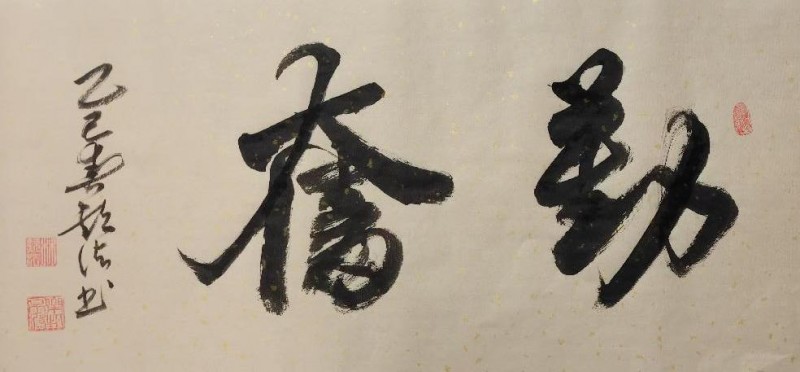 勤奮
乙巳春 法書